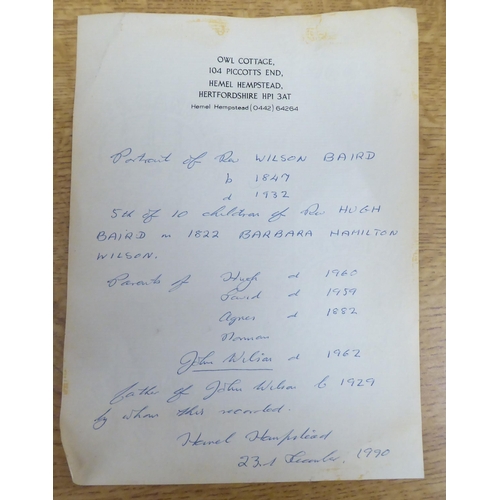 OWL COTTAGE,
104 PICCOTTS END,
HEMEL HEMPSTEAD,
HERTFORDSHIRE HP1 3AT
Hemel Hempstead (0442) 64264
Portrait of Rev WILSON BAIRD
b 1847
d 1932
5th of 10 children of Rev HUGH
BAIRD m 1822 BARBARA HAMILTON
WILSON.
Parents of Hugh d 1960
David d 1959
Agnes d 1882
Norman
John Wilson d 1962
father of John Wilson b 1929
by whom this recorded.
Hemel Hempstead
23rd December, 1990